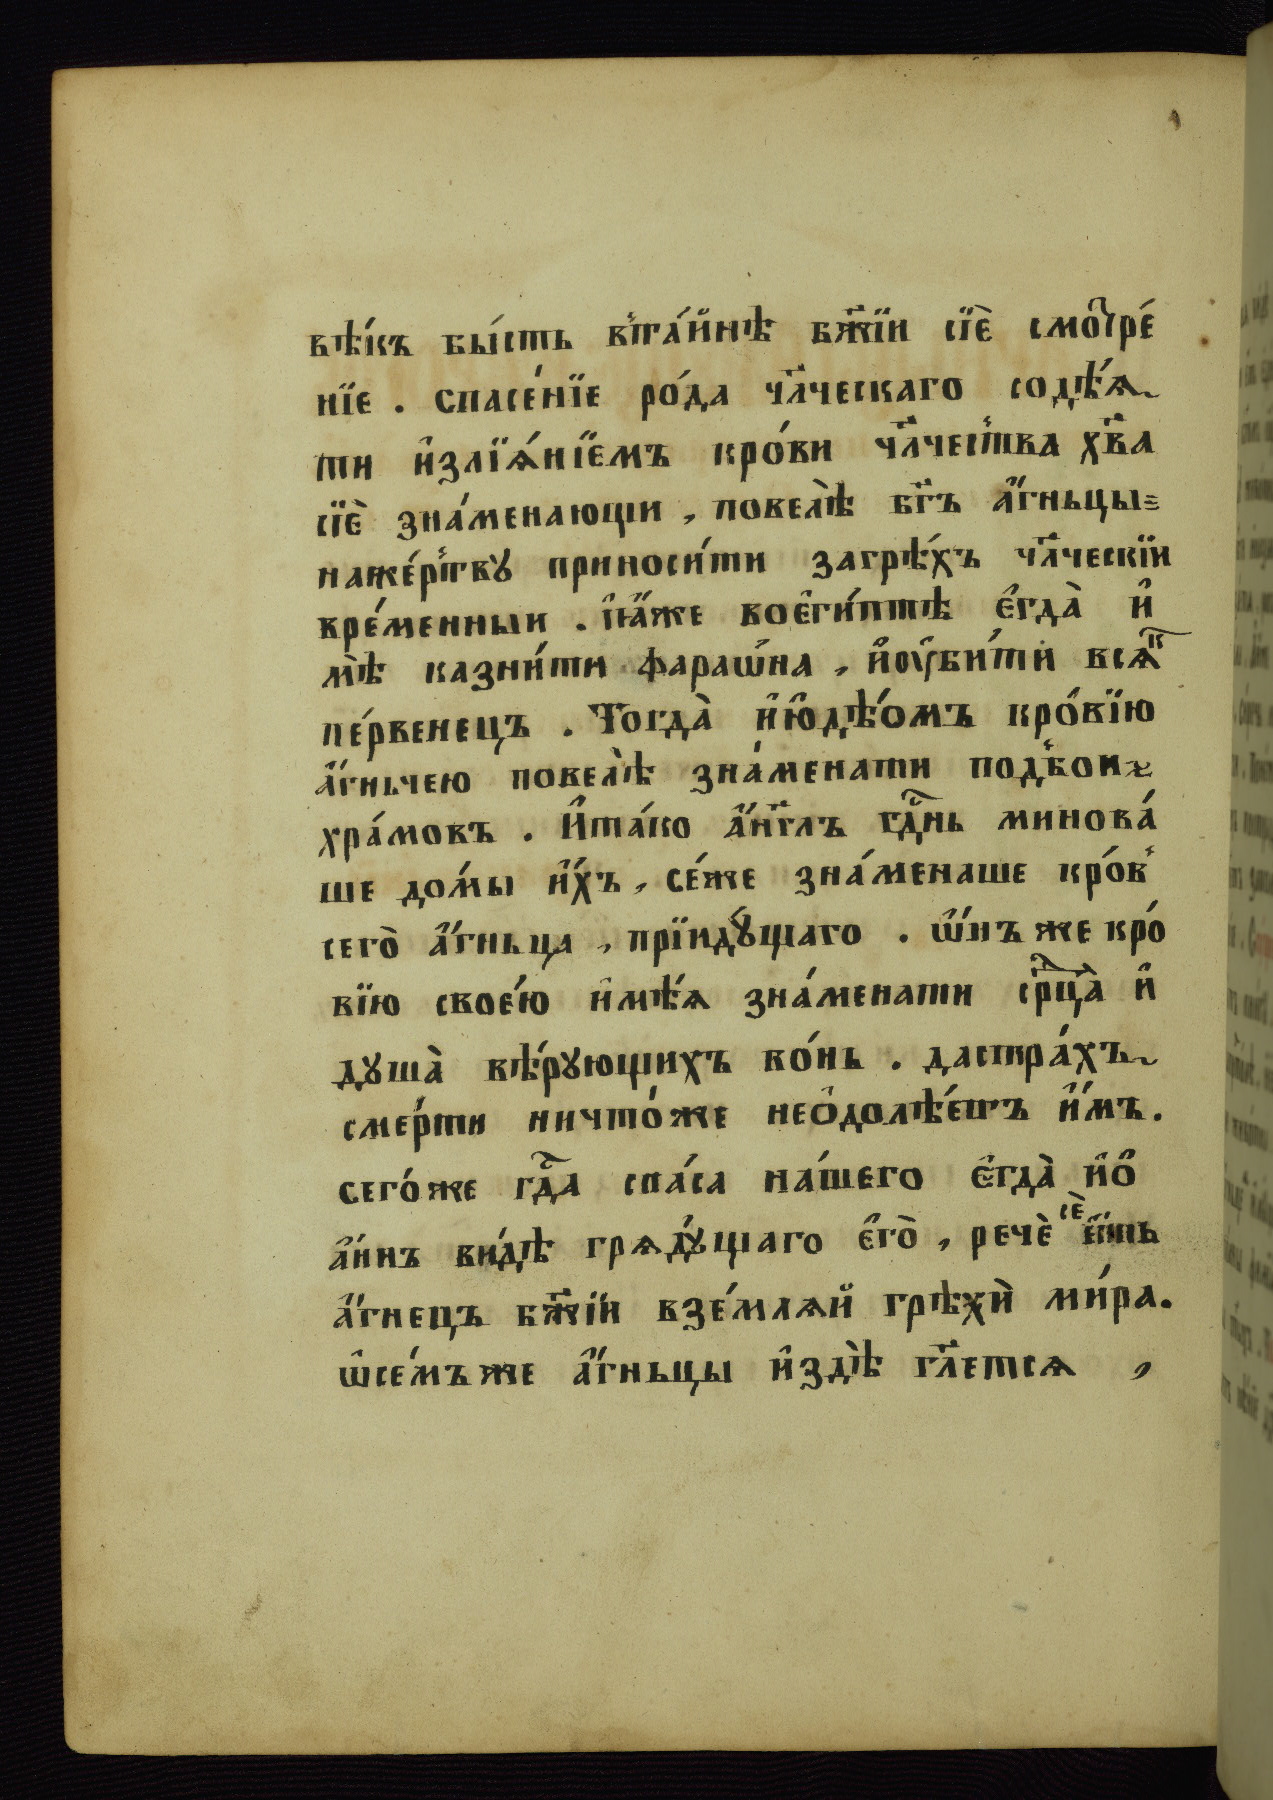 вѣ́къ бы́сть в̾та́йнѣ бж҃їи сїѐ смо́тре́
нїе . спасе́нїе ро́да чл҃ческаго содѣ́ѧ
ти и҆злїѧ́нїемъ кро́ви чл҃чест̾ва хв҃а
сїѐ зна́менающи , повелѣ̀ бг҃ъ а҆́гньцы=
наже́рт̾вꙋ приноси́ти загрѣ́хъ чл҃ческїи
вре́менныи . ꙗ҆́же вое҆ги́птѣ є҆гда̀ и҆
мѣ̀ казни́ти фараѡ́на , и҆оу҆би́ти всѧ́к
пе́рвенецъ . Тогда̀ и҆ю҆дѣ́омъ кро́вїю
а҆́гньчею повелѣ̀ зна́менати под̾вои
хра́мовъ . И҆та́ко а҆́нг҃лъ гд҇нь минова́
ше до́мы и҆́хъ , се́же зна́менаше кро́в̾
сего̀ а҆́гньца , прїидꙋ́щаго . ѡ҆́нъ же кро́
вїю свое́ю и҆мѣ́ѧ зна́менати ср҇ца̀ и҆
дꙋша̀ вѣ́рꙋющихъ во́нь . дастра́хъ
сме́рти ничто́же неѻ҆долѣ́етъ и҆́мъ .
сего́же гд҇а спа́са на́шего є҆гда̀ и҆ѻ҆
а҆́ннъ ви́дѣ грѧдꙋ́щаго є҆го̀ , речѐ сѐ є҆́сть
а҆́гнецъ бж҃їй взе́млѧй грѣхѝ ми́ра .
ѡ҆се́мъже а҆́гньцы и҆здѣ̀ гл҃етсѧ ,